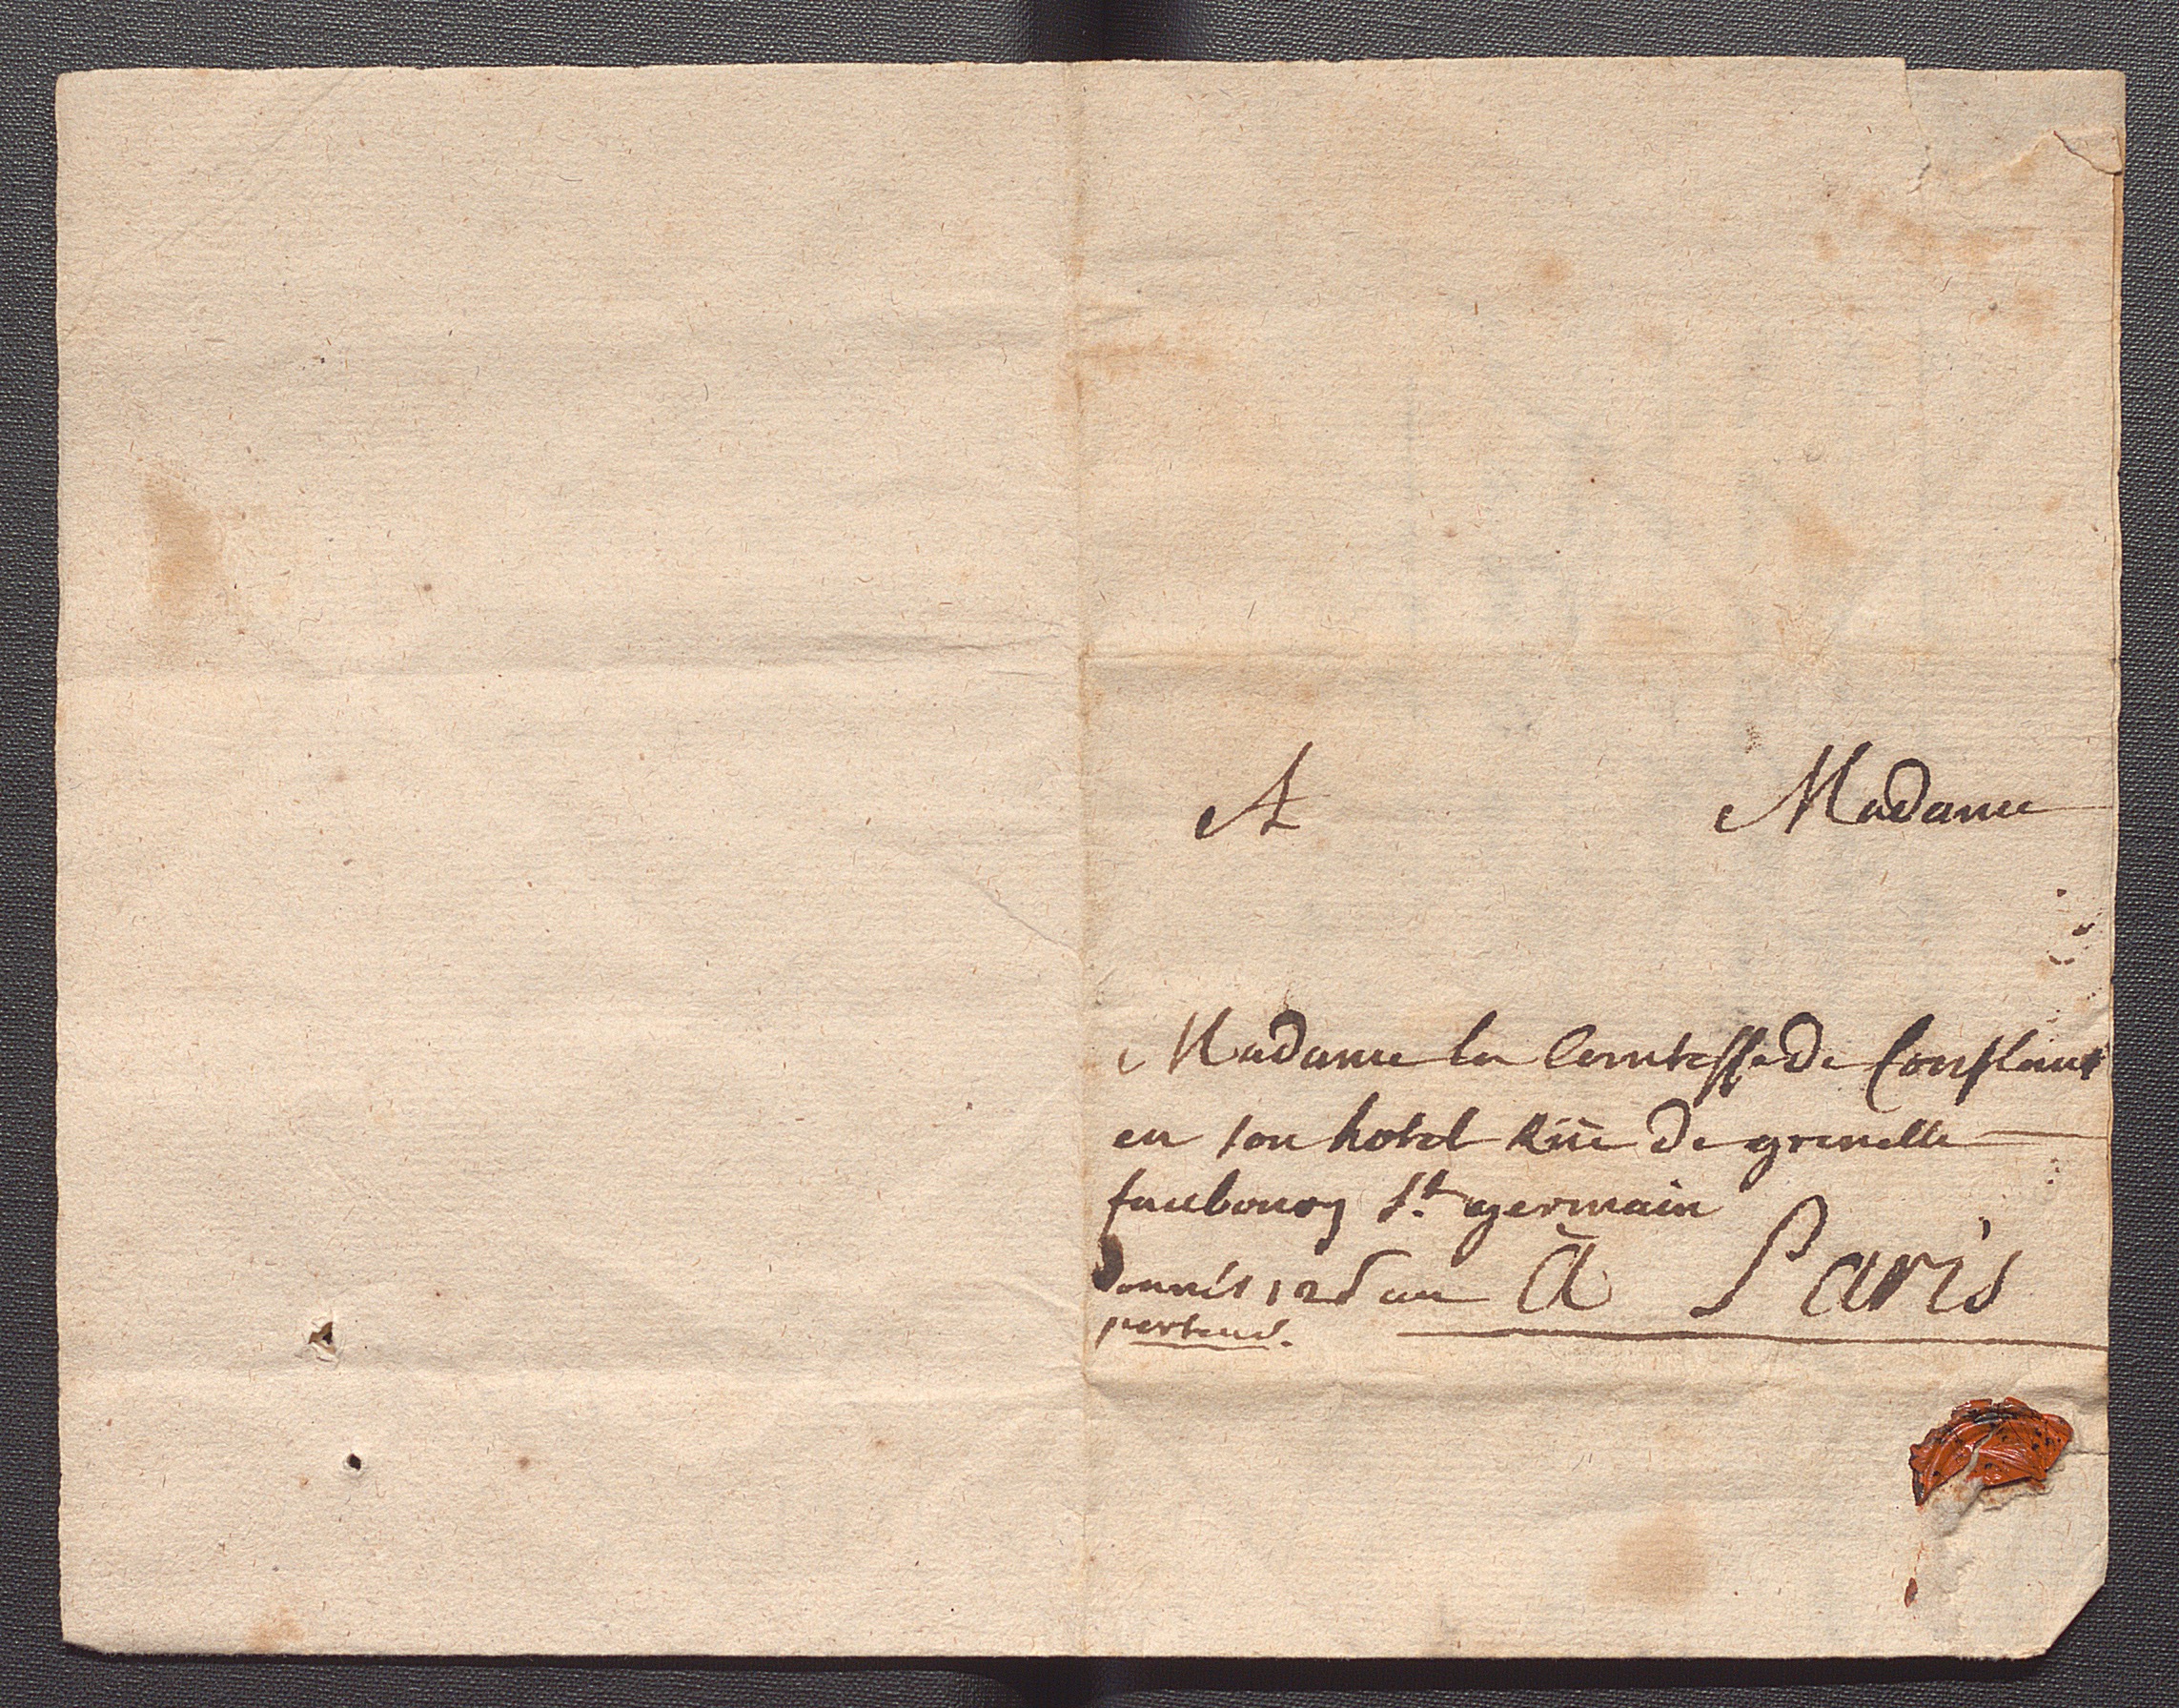 A Madame
Madame la Comtesse de Conflans
en son hotel Rüe de grenelle
faubourg St. germain
donnés 12 s au à Paris
porteur.